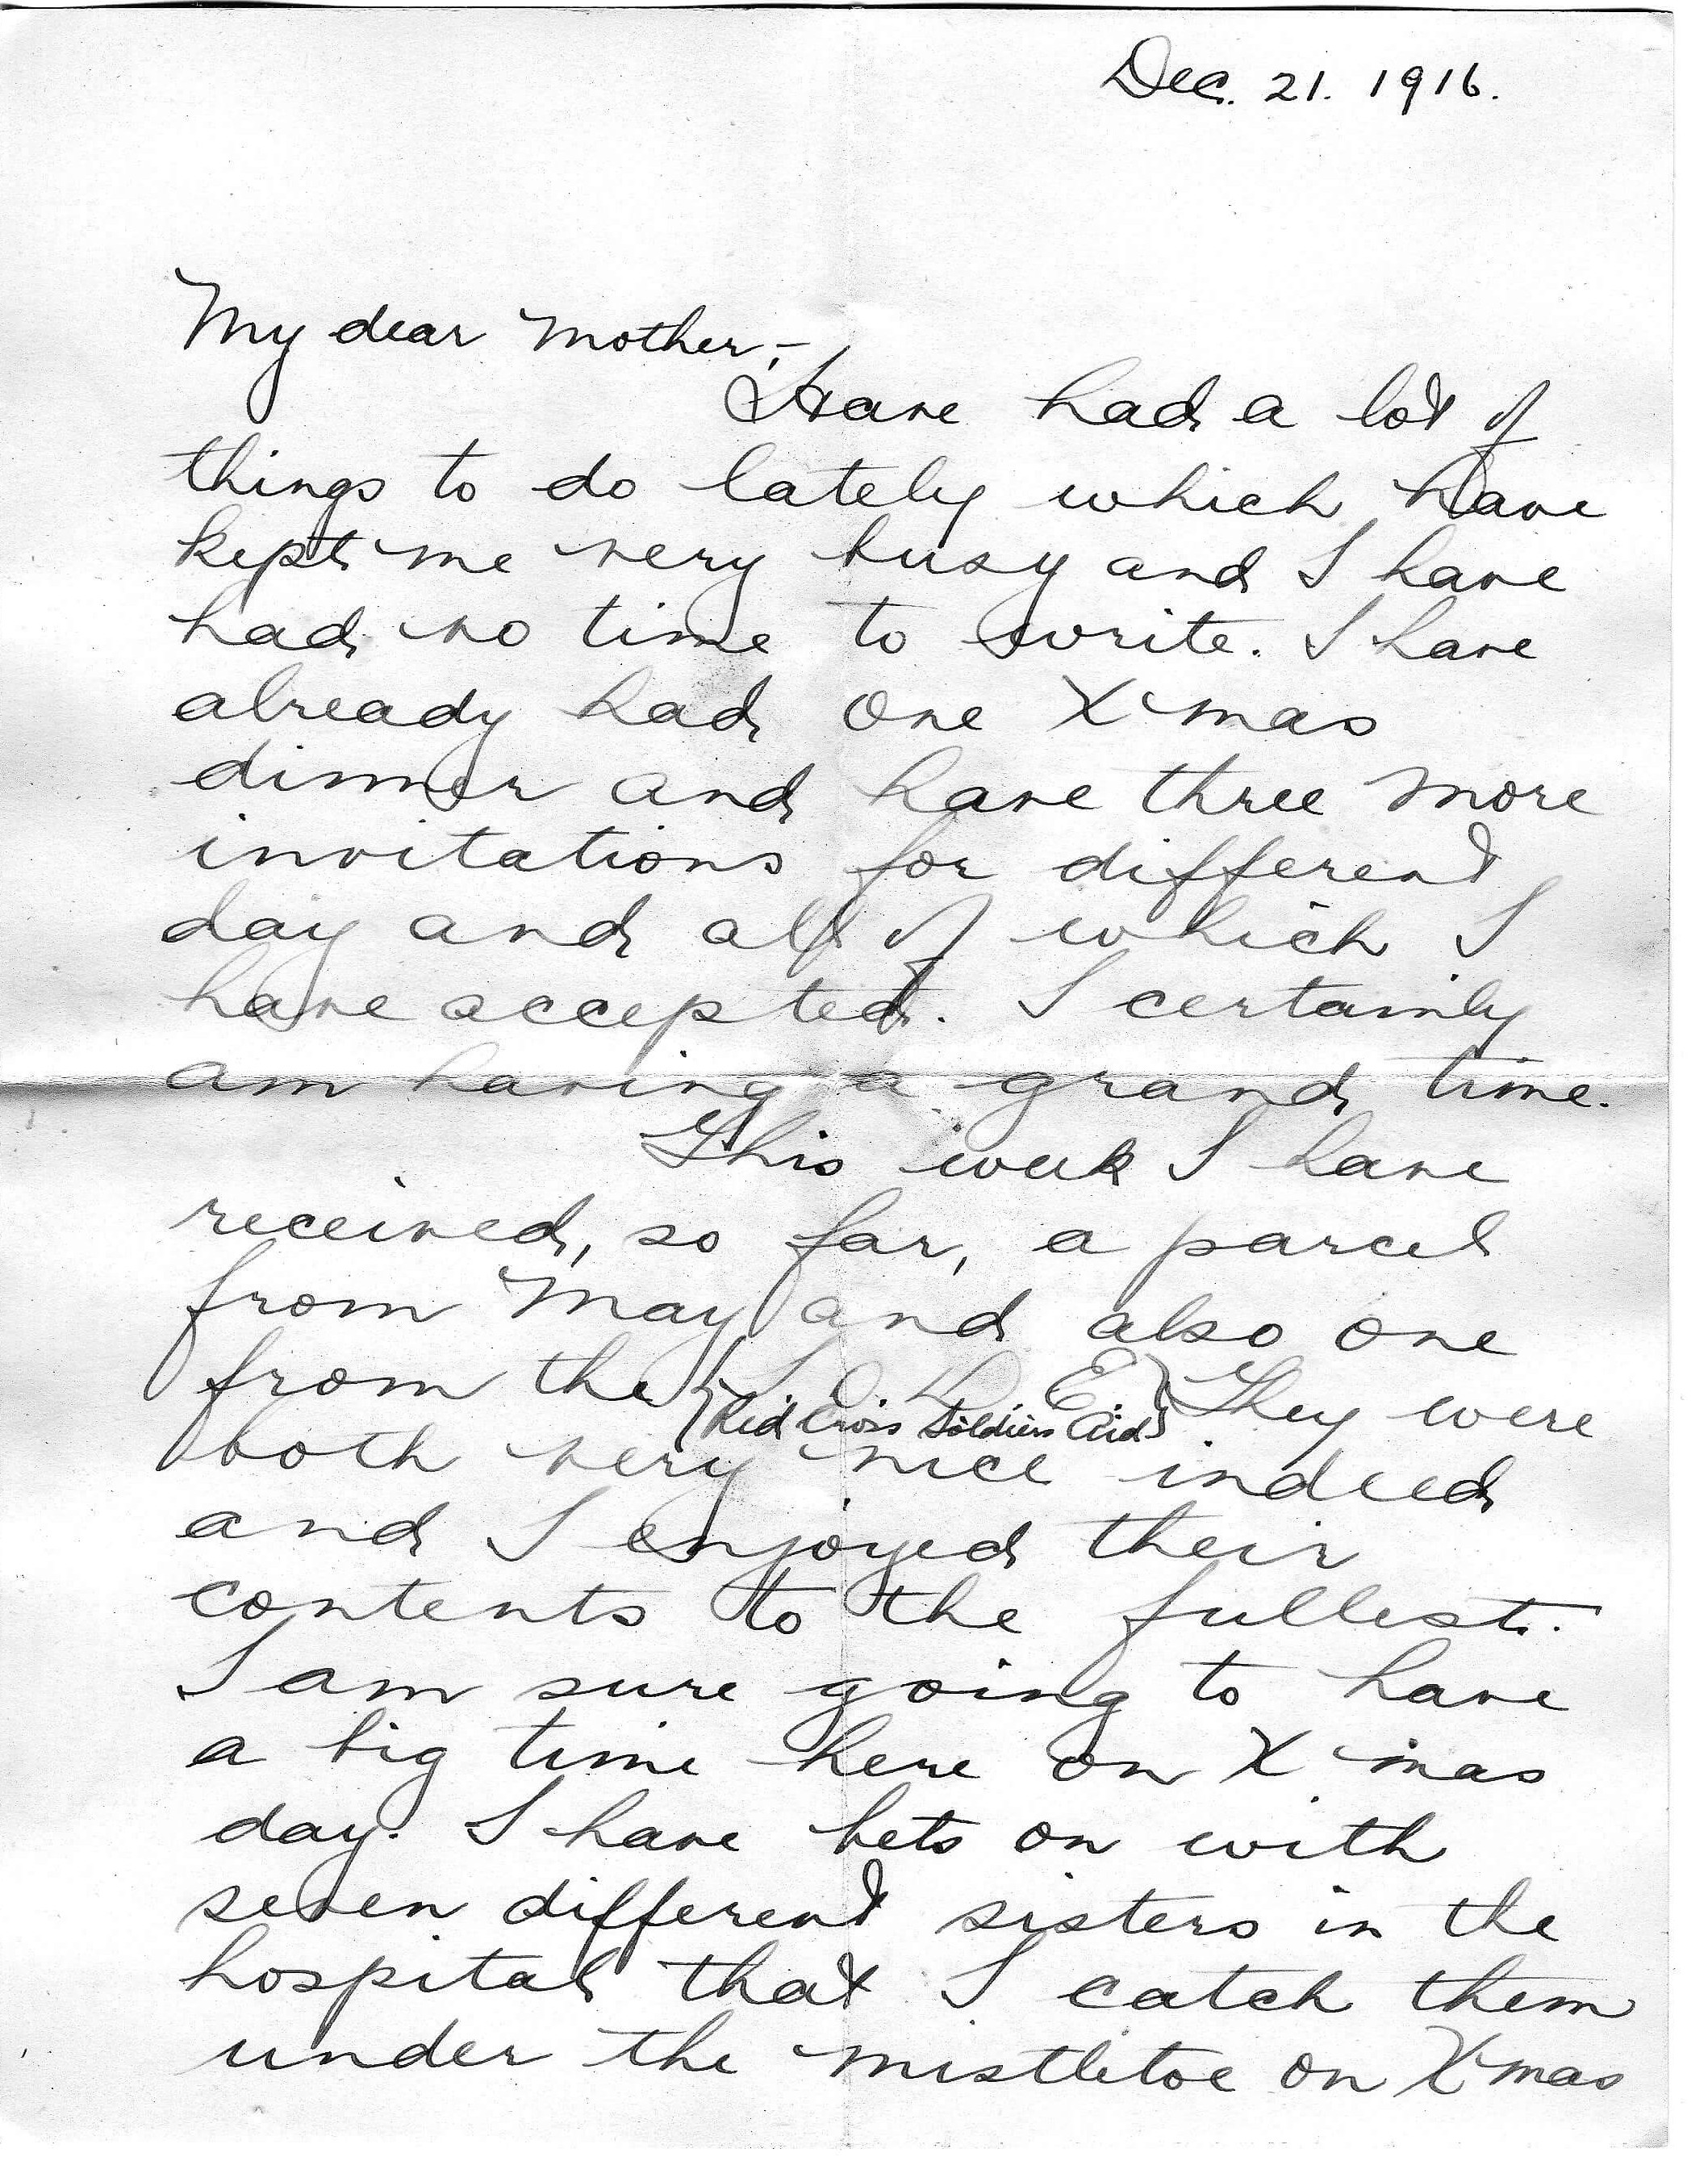 Dec. 21. 1916.
My dear Mother,-
Have had a lot of
things to do lately which have
kept me very busy and I have
had no time to write. I have
already had one X mas
dinner and have three more
invitations for different
day and all of which I
have accepted. I certainly
am having a grand time.
This week I have
received, so far, a parcel
from May and also one
from the { I O D E } They were
{ Red Cross Soldiers Aid }
both very nice indeed
and I enjoyed their
contents to the fullest.
I am sure going to have
a big time here on X mas
day. I have bets on with
seven different sisters in the
hospital that I catch them
under the mistletoe on X mas